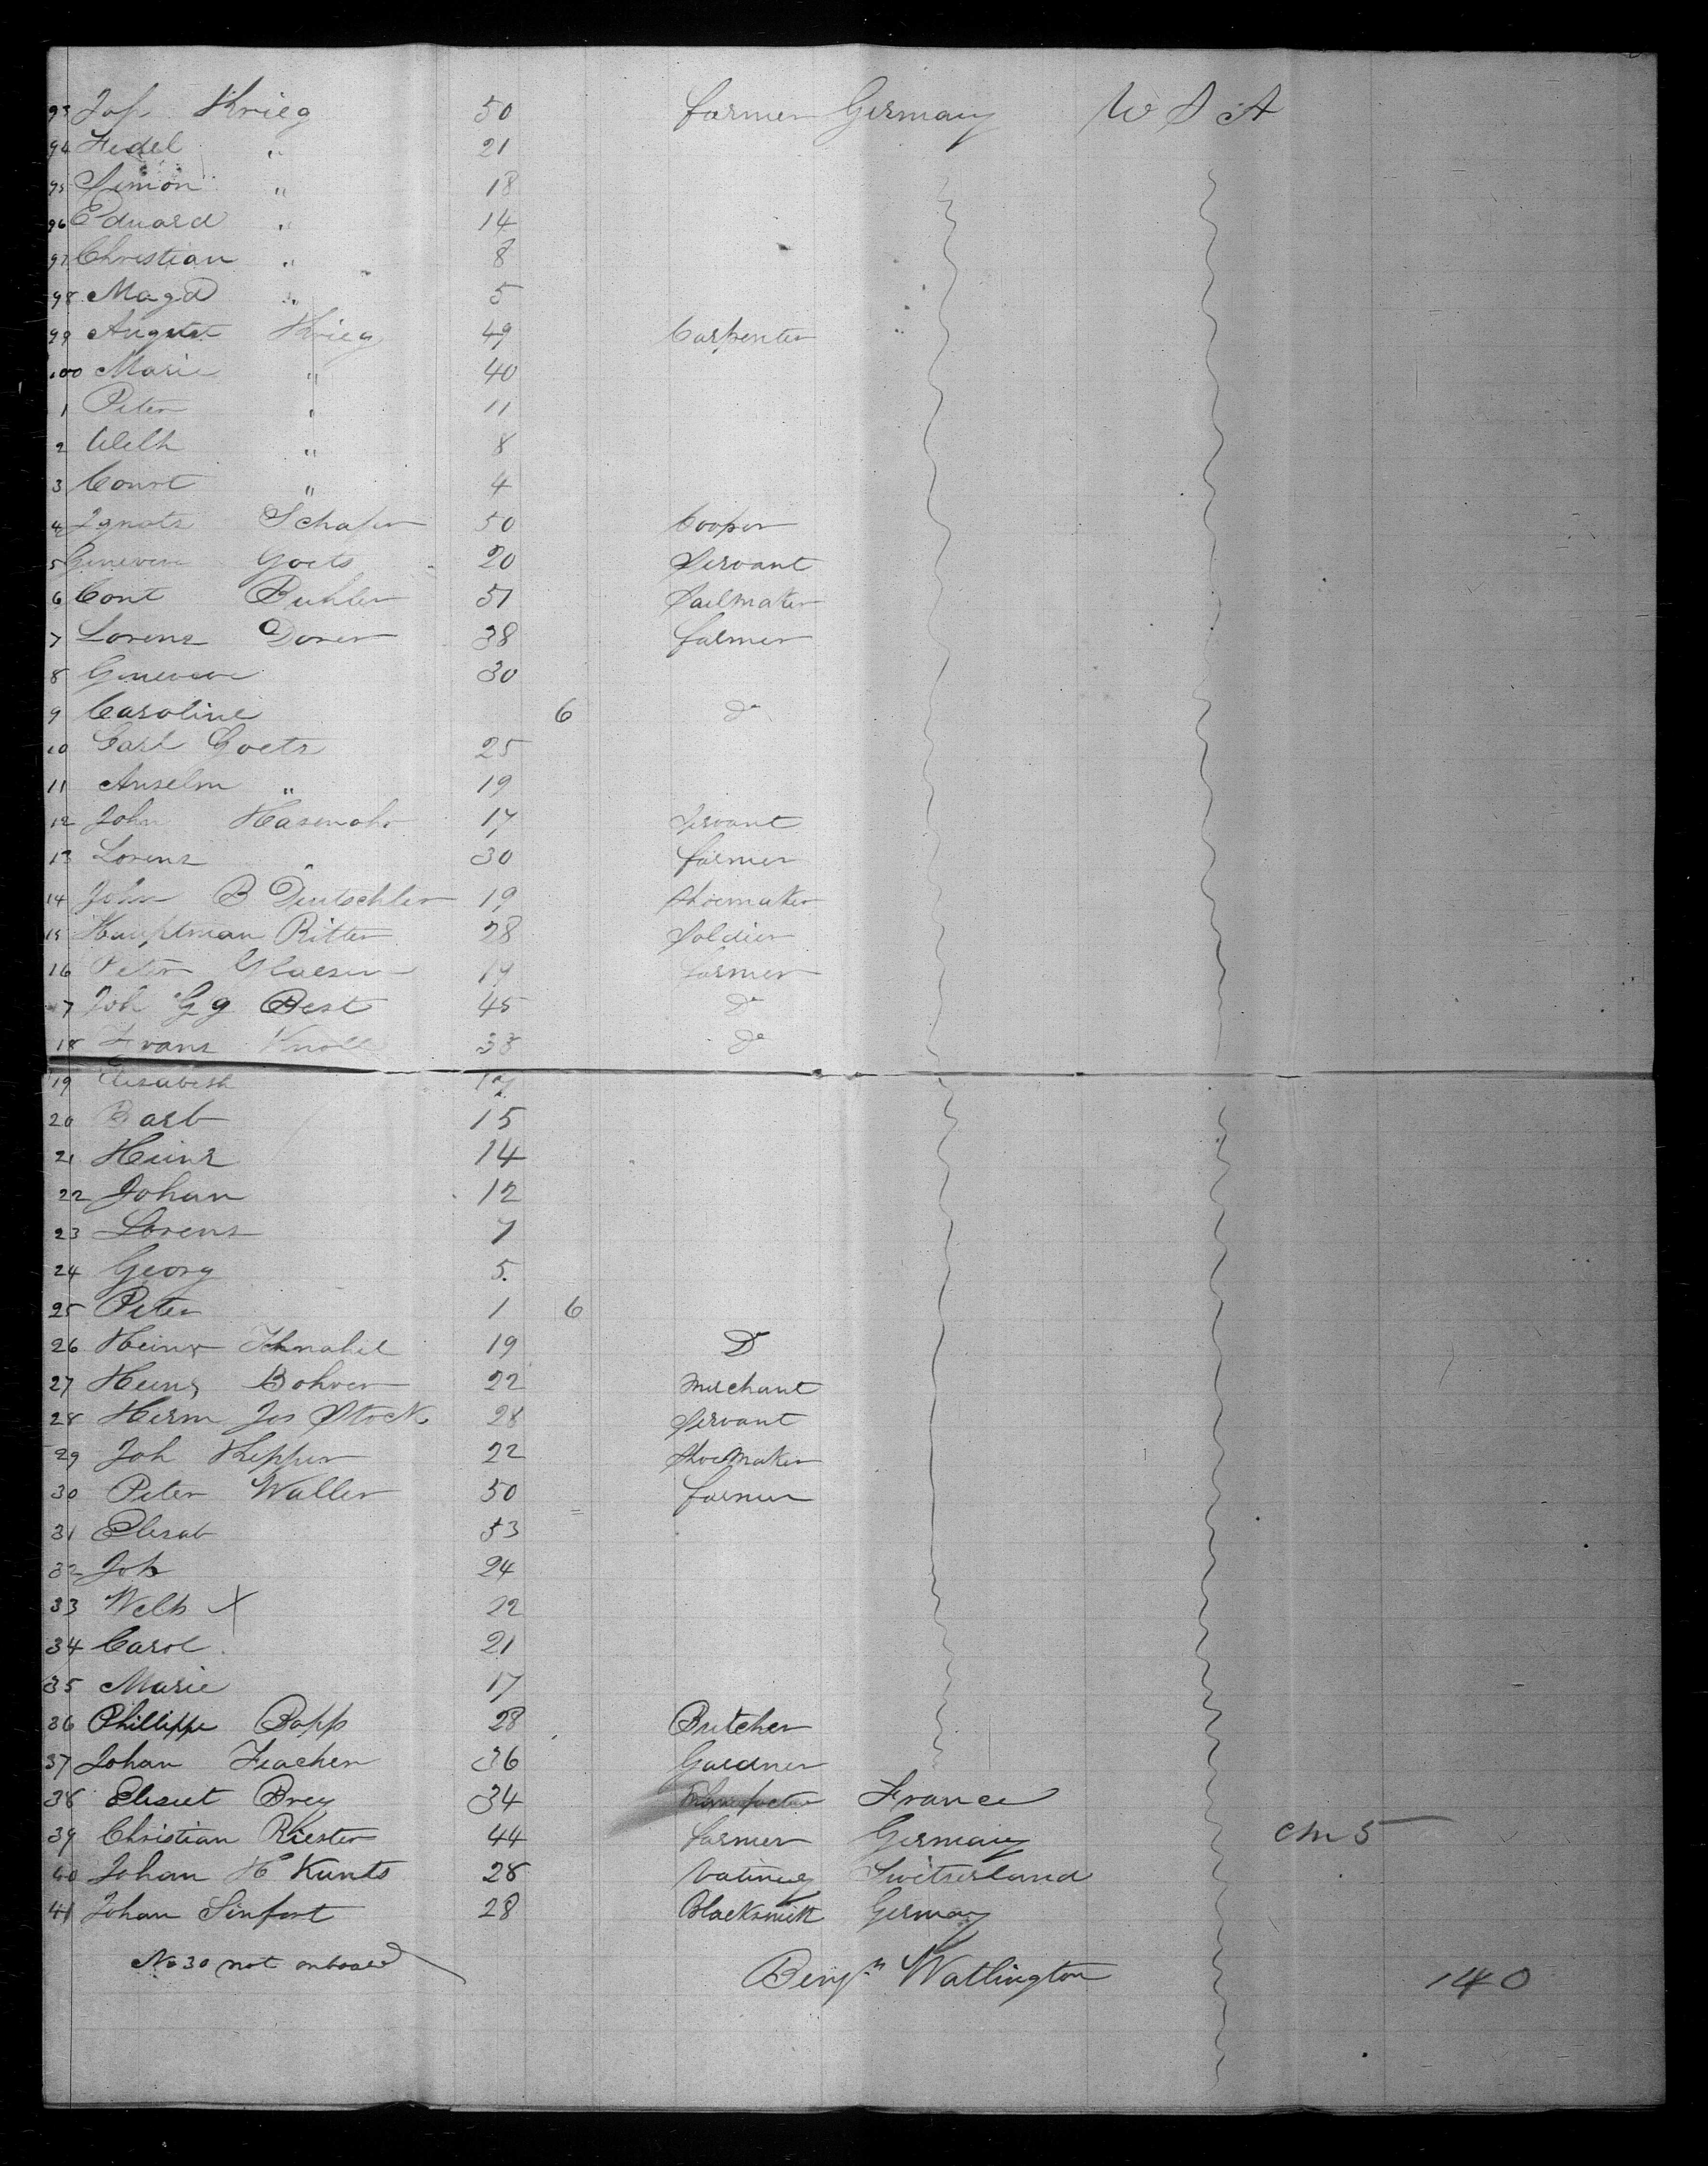 93 Jos Krieg 50 farmer Germany U S A
94 Fedel " 21
95 Simon " 18
96 Eduard " 14
97 Christian " 8
98 Magd " 5
99 August Krieg 49 Carpenter
100 Marie " 40
1 Peter " 11
2 Welh " 8
3 Conrt " 4
4 Ignatz Schafer 50 Cooper
5 Geneveve Goets 20 Servant
6 Cont Buhler 51 Sailmaker
7 Lorenz Dorer 38 farmer
8 Geneveve 30
9 Caroline 6 Do
10 Carl Goetz 25
11 Anselm " 19
12 John Hasenohr 17 Servant
13 Lorenz " 30 farmer
14 John B Deutschler 19 Shoemaker
15 Hauptman Ritter 28 Soldier
16 Peter Glaeser 19 farmer
17 Joh Gg Best 45 Do
18 Franz Knoll 38 Do
19 Elisabeth 17
20 Barb 15
21 Heinz 14
22 Johan 12
23 Lorenz 7
24 Georg 5
25 Peter 1 6
26 Heinr 19 Do
27 Heinz Bohrer 22 Merchant
28 Herm Jos Stock 28 Servant
29 Joh Kepper 22 Shoemaker
30 Peter Waller 50 farmer
31 Elisab 53
32 Joh 24
33 Welh X 22
34 Carol 21
35 Marie 17
36 Phillippe Bopp 28 Butcher
37 Johan 36 Gardner
38 Brey 34 France
39 Christian Riester 44 farmer Germany
40 Johan H Kunts 28 Switserland
41 Johan Sinfort 28 Blacksmith Germany
No 30 not onboard Benjn Watlington 140